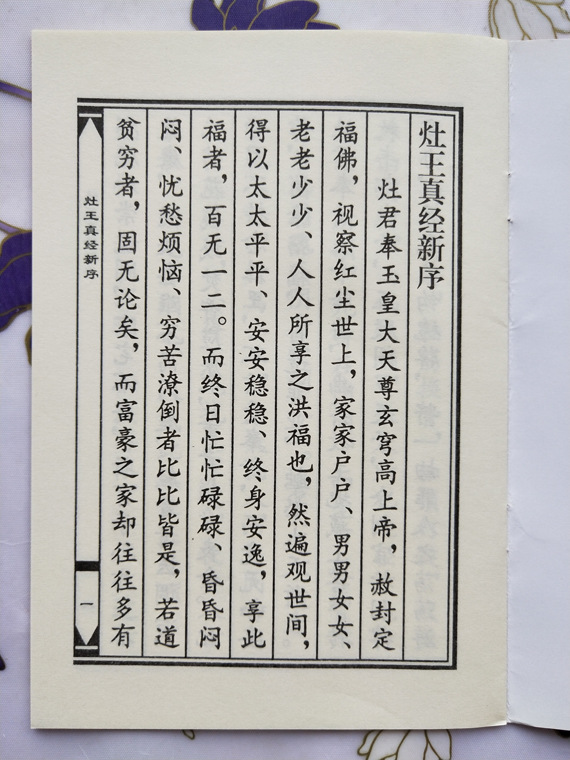 灶王真经新序
灶君奉玉皇大天尊玄穹高上帝，赦封定
福佛，视察红尘世上，家家户户、男男女女、
老老少少、人人所享之洪福也，然遍观世间，
得以太太平平、安安稳稳、终身安逸，享此
福者，百无一二。而终日忙忙碌碌、昏昏闷
闷、忧愁烦恼、穷苦潦倒者比比皆是，若道
贫穷者，固无论矣，而富豪之家却往往多有
灶王真经新序
一